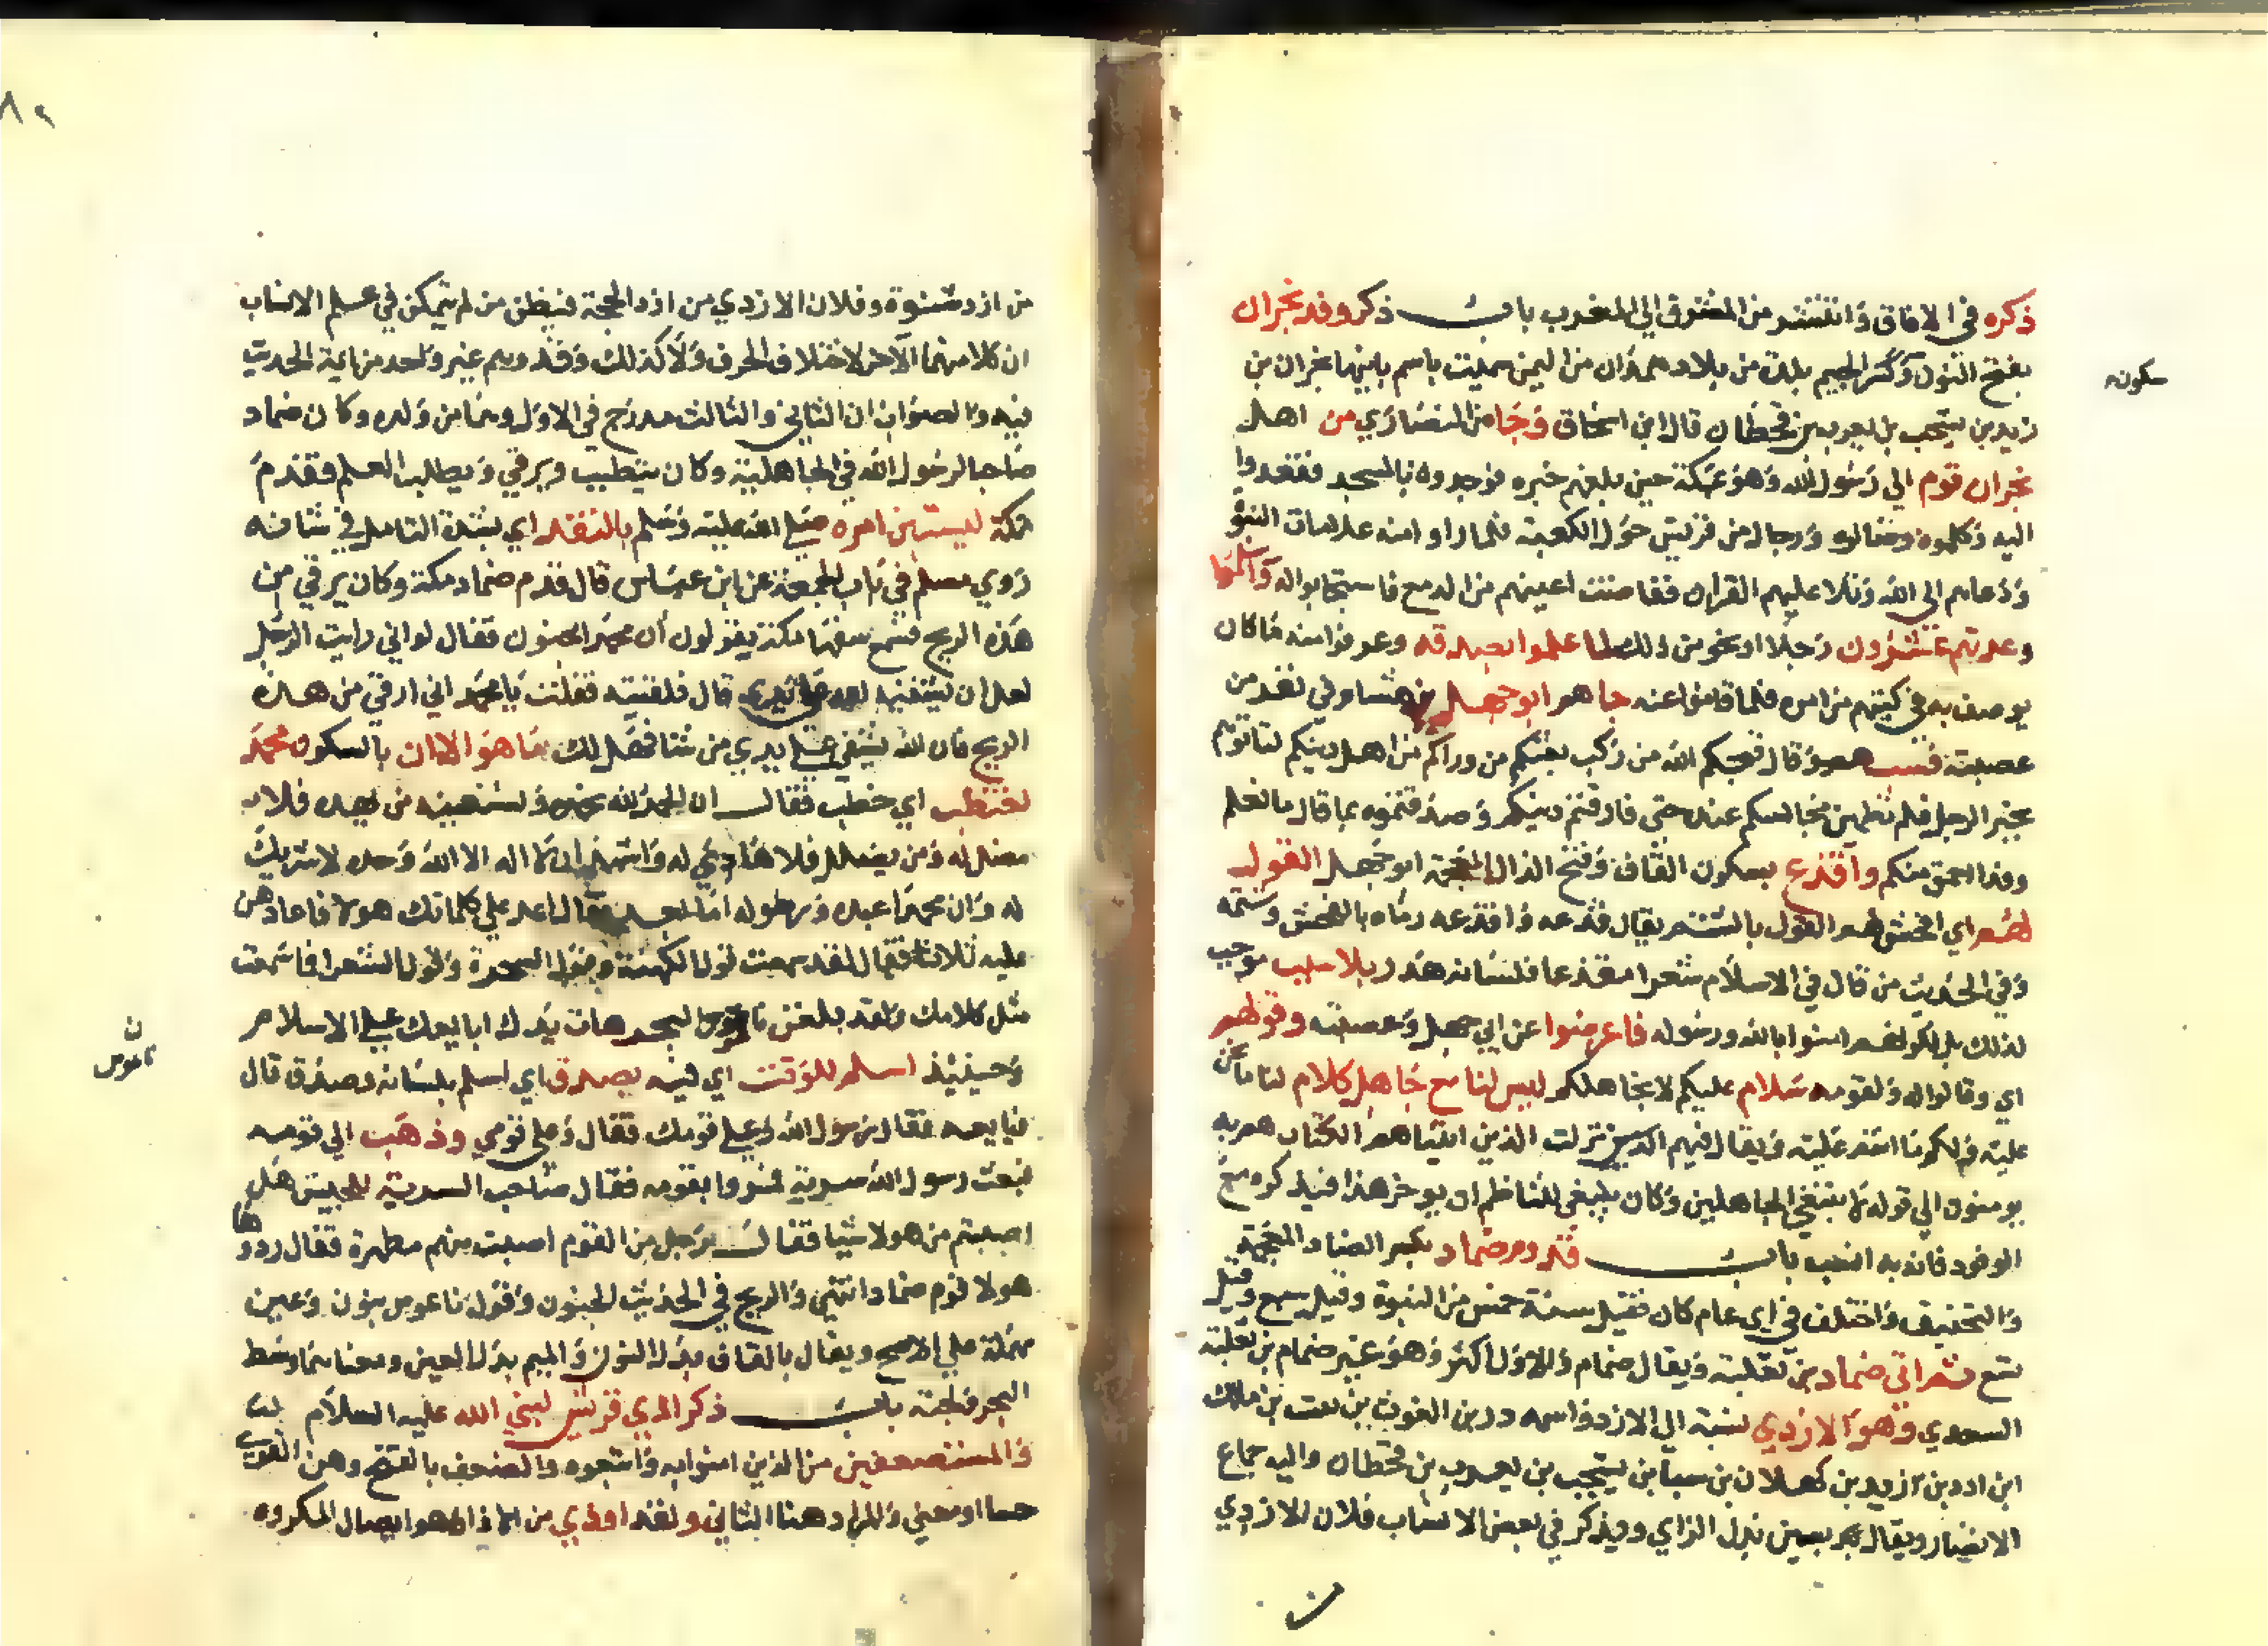 ذكره في الافاق وانتشر من المشرق الي المغرب باب ذكر وفد نجران
بفتح النون وكسر الجيم بلدة من بلاد همدان من اليمن سميت باسم بانيها نجران بن
زيد بن يشجب بن يعرب بن قحطان قال ابن اسحاق وجا من النصاري من اهل
نجران قوم الي رسول الله وهو بمكة حين بلغهم خبره فوجدوه بالمسجد فقعدوا
اليه وكلموه وسالوه ورجال من قريش حول الكعبة فلما راوا منه علامات النبوة
ودعاهم الي الله وتلا عليهم القران ففاضت اعينهم من الدمع فاستجابوا له واسلموا
وعدتهم عشرون رجلا او نحو من ذلك لما علموا بصدقه وعرفوا منه ما كان
يوصف به في كتبهم من امره فلما قاموا عنه جاهم ابو جهل بن هشام في نفر من
عصبته فسبهم وقال قبحكم الله من ركب بعثكم من وراكم من اهل دينكم لتاتوهم
بخبر الرجل فلم تطمئن مجالسكم عنده حتي فارقتم دينكم وصدقتموه بما قال ما نعلم
وفدا احمق منكم واقذع بسكون القاف وفتح الذال المعجمة ابو جهل القول
لهم اي افحش لهم القول بالشتم يقال قذعه واقذعه رماه بالفحش وشتمه
وفي الحديث من قال في الاسلام شعرا مقذعا فلسانه هدر بلا سبب موجب
لذلك بل لكونهم امنوا بالله ورسوله فاعرضوا عن ابي جهل وعصبته وقولهم
اي وقالوا له ولقومه سلام عليكم لا نجاهلكم ليس لنا مع جاهل كلام لنا ما نحن
عليه ولكم ما انتم عليه ويقال فيهم نزلت الذين اتيناهم الكتاب هم به
يومنون الي قوله لا نبتغي الجاهلين وكان ينبغي للناظم ان يوخر هذا فيذكره مع
الوفود فانه به انسب باب قدوم ضماد بكسر الضاد المعجمة
والتخفيف واختلف في اي عام كان فقيل سنة خمس من النبوة وقيل سبع وقيل
تسع ثم اتي ضماد بن ثعلبة ويقال ضمام والاول اكثر وهو غير ضمام بن ثعلبة
السعدي وهو الازدي نسبة الي الازد واسمه درر بن الغوث بن نبت بن مالك
ابن ادد بن زيد بن كهلان بن سبا بن يشجب بن يعرب بن قحطان واليه جماع
الانصار ويقال بسين بدل الزاي ويذكر في بعض الانساب فلان الازدي
سكونه
من ازد شنوة وفلان الازدي من ازد الحجة فيظن من لم يتمكن في علم الانساب
ان كلا منهما الاخر لاختلاف الحرف ولا كذلك وقد وهم غير واحد من ايمة الحديث
فيه والصواب ان الثاني والثالث مدرج في الاول وهما من ولده وكان ضماد
صاحبا لرسول الله في الجاهلية وكان يتطبب ويرقي ويطلب العلم فقدم
مكة ليستبين امره صلي الله عليه وسلم بالنقد اي بشدة التامل في شانه
روي مسلم في باب الجمعة عن ابن عباس قال قدم ضماد مكة وكان يرقي من
هذه الريح فسمع سفها مكة يقولون ان محمدا مجنون فقال لو اني رايت الرجل
لعل ان يشفيه الله علي يدي قال فلقيته فقلت يا محمد اني ارقي من هذه
الريح فان الله يشفي علي يدي من شا فهل لك فما هو الا ان بالسكون محمد
لخطب اي خطب فقال ان الحمد لله نحمده ونستعينه من يهده فلا
مضل له ومن يضلل فلا هادي له واشهد ان لا اله الا الله وحده لا شريك
له وان محمدا عبده ورسوله اما بعد فقال اعد علي كلماتك هولا فاعادهن
عليه ثلاثا فقال لقد سمعت قول الكهنة وقول السحرة وقول الشعرا فما سمعت
مثل كلامك ولقد بلغن ناعوس البحر هات يدك ابايعك علي الاسلام
وحينئذ اسلم للوقت اي ليه بصدق اي اسلم بلسانه وصدق قال
فبايعه فقال رسول الله وعلي قومك فقال وعلي قومي وذهب الي قومه
فبعث رسول الله سرية فمروا بقومه فقال صاحب السرية للجيش هل
اصبتم من هولا شيا فقال رجل من القوم اصبت منهم مطهرة فقال ردوها
هولا قوم ضماد انتهي والريح في الحديث الجنون وقوله ناعوس بنون وعين
مهملة علي الاصح ويقال بالقاف بدل النون والميم بدل العين ومعناهما وسط
البحر ولجته باب ذكر اذي قريش لنبي الله عليه السلام
والمستضعفين من الذين امنوا به واتبعوه والضعف بالفتح وهن القوي
حسا او معني والمراد هنا الثاني ولقد اوذي من الاذا وهو ايصال المكروه
ن
ناعوس